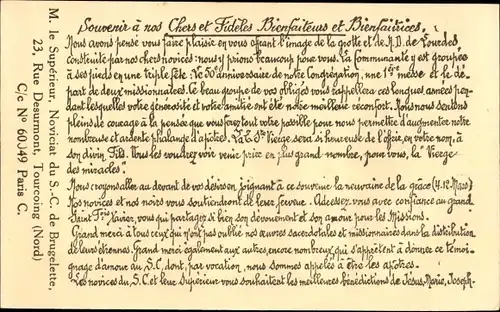 Souvenir à nos Chers et Fidèles Bienfaiteurs et Bienfaitrices.
Nous avons pensé vous faire plaisir en vous offrant l'image de la grotte et de N.D. de Lourdes,
construite par nos chers novices: nous y prions beaucoup pour vous. La Communauté y est groupée
à ses pieds en une triple fête. Le 50e anniversaire de notre Congrégation, une 1ère messe et le dé-
part de deux missionnaires. Ce beau groupe de vos obligés vous rappellera ces longues années pen-
dant lesquelles votre générosité et votre amitié ont été notre meilleur réconfort. Nous nous sentons
pleins de courage à la pensée que vous ferez tout votre possible pour nous permettre d'augmenter notre
nombreuse et ardente phalange d'apôtres. La T. Ste Vierge sera si heureuse de l'offrir, en votre nom, à
son divin Fils. Vous les voudrez voir venir prier en plus grand nombre, pour vous, la "Vierge
des miracles".
Nous croyons aller au devant de vos désirs en joignant à ce souvenir la neuvaine de la grâce (4.12 Mars)
Nos novices et nos noirs vous soutiendront de leur ferveur. Adressez vous avec confiance au grand
Saint Frçois Xavier, vous qui partagez si bien son dévouement et son amour pour les Missions.
Grand merci à tous ceux qui n'ont pas oublié nos œuvres sacerdotales et missionnaires dans la distribution
de leurs étrennes. Grand merci également aux autres, encore nombreux qui s'apprêtent à donner ce témoi-
gnage d'amour au S.C. dont, par vocation, nous sommes appelés à être les apôtres.
Les novices du S.C. et leur Supérieur vous souhaitent les meilleures bénédictions de Jésus, Marie, Joseph.
M. le Supérieur, Noviciat du S.-C. de Brugelette.
23, Rue Desurmont, Tourcoing (Nord)
C/c No 60049 Paris C.